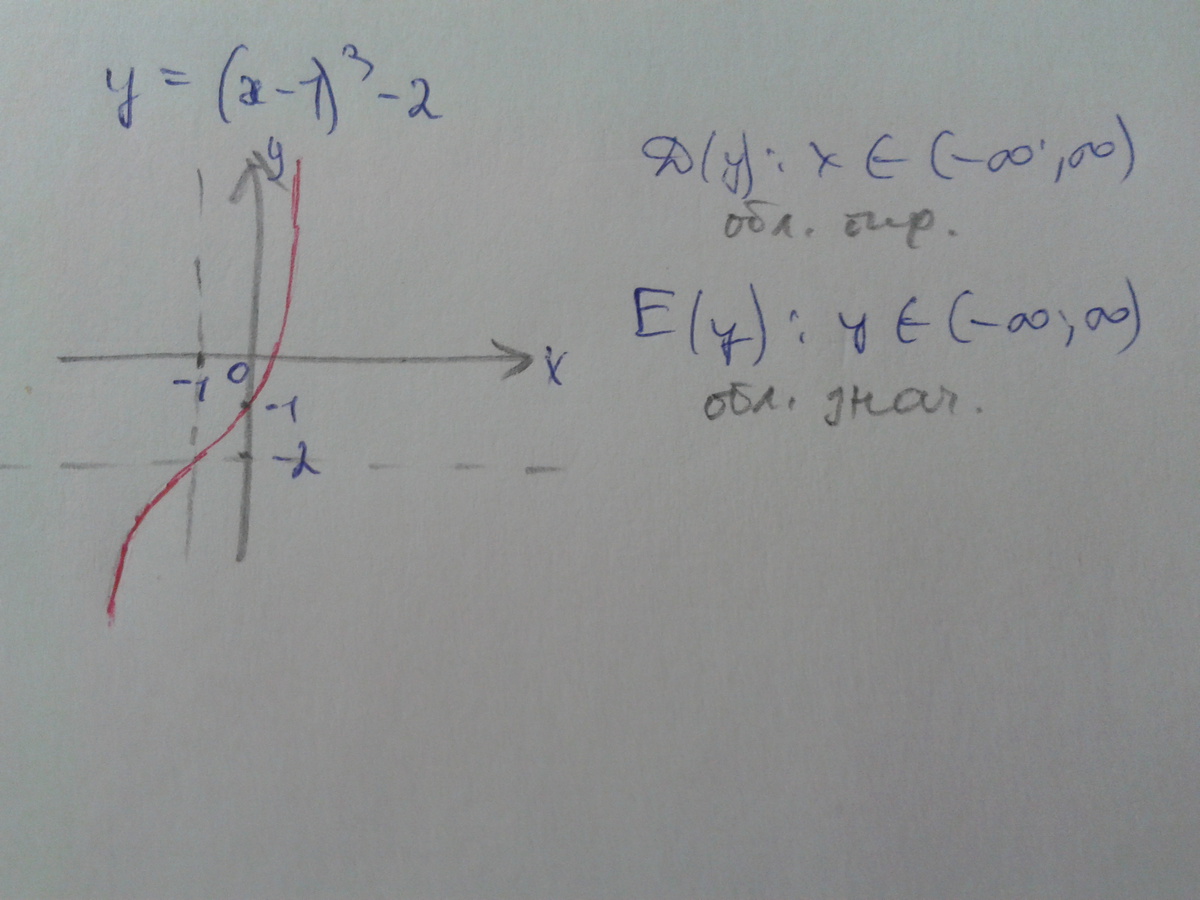 y = (x-1)³-2
y
x
-1 0
-1
-2
D(y): x ∈ (-∞; ∞)
обл. опр.
E(y): y ∈ (-∞; ∞)
обл. знач.